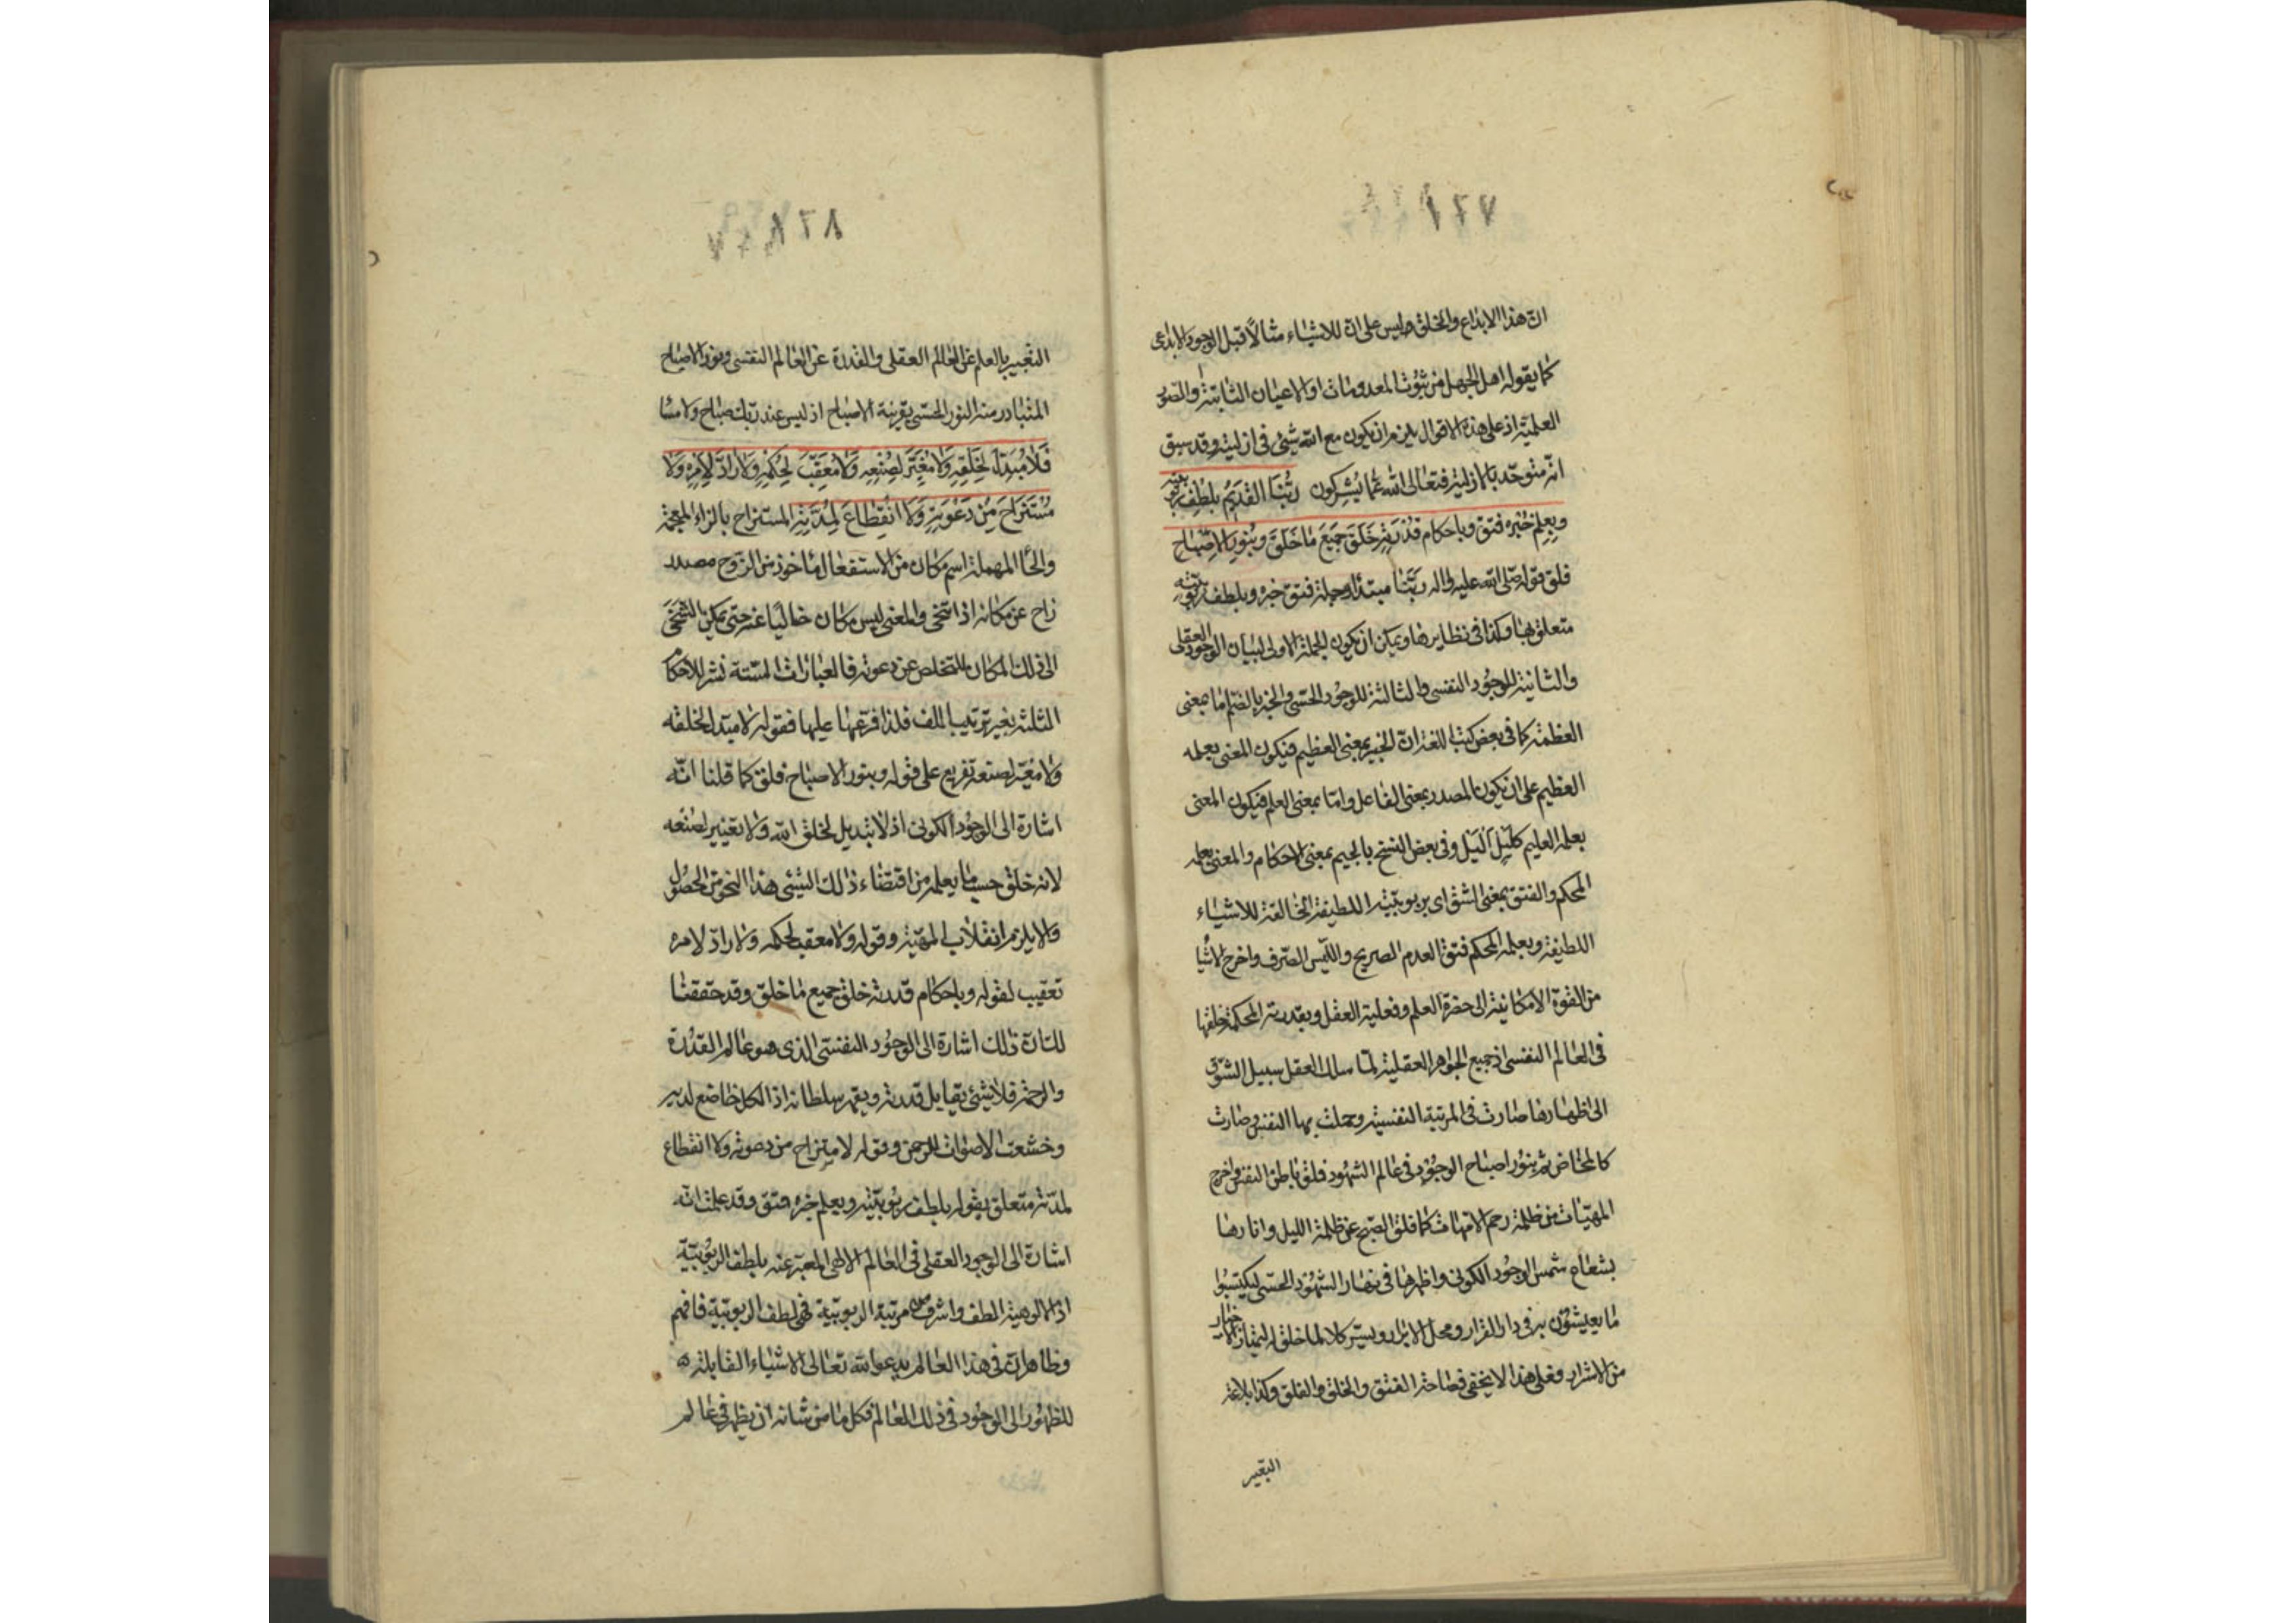 ١٢٧
ان هذا الابداع والخلق ليس على ان للاشياء مثالاً قبل الوجود الابداعى
كما يقوله اهل الجهل من ثبوت المعدومات او الاعيان الثابتة والصور
العلمية اذ على هذه الاقوال يلزم ان يكون مع الله شيئ فى ازليته وقد سبق
انه متوحد بالازلية فتعالى الله عما يشركون رَبُّنَا القَديمُ بِلُطفِ ربوبيته
وَبِعِلمِ خُبْرِه فتق وباحكام قُدْرَتِهِ خَلَقَ جَميعَ مٰا خَلَقَ وَبِنُورِ الاِصْبٰاحِ
فلق قوله صلى الله عليه واله ربنا مبتدأ وجملة فتق خبره وبلطف ربوبيته
متعلق بها وكذا فى نظايرها ويمكن ان يكون الجملة الاولى لبيان الوجود العقلى
والثانية للوجود النفسى والثالثة للوجود الحسى والخبر بالضم اما بمعنى
العظمة كما فى بعض كتب اللغة ان الخبير بمعنى العظيم فيكون المعنى بعلمه
العظيم على ان يكون المصدر بمعنى الفاعل واما بمعنى العلم فيكون المعنى
بعلمه العليم كلَيلٍ اَليَل وفى بعض النسخ بالجيم بمعنى الاحكام والمعنى بعلمه
المحكم والفتق بمعنى الشق اى بربوبيته اللطيفة الخالقة للاشياء
اللطيفة وبعلمه المحكم فتق العدم الصريح والليس الصرف واخرج الاشيا
من القوة الامكانية الى حضرة العلم وفعلية العقل وبقدرته المحكمة خلقها
فى العالم النفسى اذ جميع الجواهر العقلية لما سلك العقل سبيل الشوق
الى اظهارها صارت فى المرتبة النفسية وحملت بها النفس وصارت
كالمخاض ثم بنور اصباح الوجود فى عالم الشهود فلق باطن النفس واخرج
المهيات من ظلمة رحم الامهات كما فلق الصبح عن ظلمة الليل وانارها
بشعاع شمس الوجود الكونى واظهرها فى نهار الشهود الحسى ليكتسبوا
ما يعيشون به فى دار القرار ومحل الابرار ويسر كلا لما خلق له ليمتاز الاخيار
من الاشرار فعلى هذا لا يخفى فصاحة الفتق والخلق والفلق وكذا بلاغة
التعبير
١٢٨
التعبير بالعلم عن العالم العقلى والقدرة عن العالم النفسى ونور الاصباح
المتبادر منه النور الحسى بقرينة الاصباح اذ ليس عند ربك صباح ولا مسا
فَلاٰ مُبَدِّلَ لِخَلْقِهِ وَلاٰ مُغَيِّرَ لِصُنْعِهِ وَلاٰ مُعَقِّبَ لِحُكْمِهِ وَلاٰ رادَّ لِاَمْرِهِ وَلاٰ
مُسْتَزاحَ مِن دَعْوَتِهِ وَلاَ انْقِطاعَ لِمُدَّتِهِ المستزاح بالزاء المعجمة
والحا المهملة اسم مكان من الاستفعال مأخوذ من الزوح مصدر
زاح عن مكانه اذا تنحى والمعنى ليس مكان خاليا عنه حتى يمكن التنحى
الى ذلك المكان للتخلص عن دعوته فالعبارات الستة نشر للاحكام
الثلثة بغير ترتيب اللف فلذا فرعها عليها فقوله لا مبدل لخلقه
ولا مغير لصنعه تفريع على قوله وبنور الاصباح فلق كما قلنا انه
اشارة الى الوجود الكونى اذ لا تبديل لخلق الله ولا تغيير لصنعه
لانه خلق حسب ما يعلمه من اقتضاء ذلك الشيئ هذا النحو من الحصول
والا يلزم انقلاب المهية وقوله ولا معقب لحكمه ولا راد لامره
تعقيب لقوله وباحكام قدرته خلق جميع ما خلق وقد حققنا
لك ان ذلك اشارة الى الوجود النفسى الذى هو عالم القدرة
والرحمة فلا شيئ يقابل قدرته ويقهر سلطانه اذ الكل خاضع لديه
وخشعت الاصوات للرحمن وقوله لا مستزاح من دعوته ولا انقطاع
لمدته متعلق بقوله بلطف ربوبيته وبعلم خبره فتق وقد علمت انه
اشارة الى الوجود العقلى فى العالم الالهى المعبر عنه بلطف الربوبية
اذ الالوهية الطف واشرف من مرتبة الربوبية فهى لطف الربوبية فافهم
وظاهر ان فى هذا العالم يدعو الله تعالى الاشياء القابلة
للظهور الى الوجود فى ذلك العالم فكل ما من شانه ان يظهر فى عالم